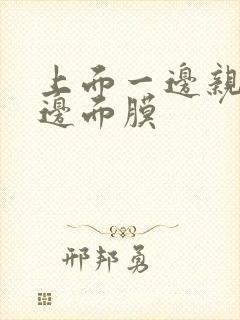 上而一邊親
邊而膜
邢邦勇